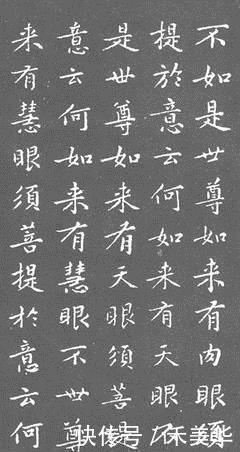 不如是世尊如来有肉眼須
提於意云何如来有天眼不
是世尊如来有天眼須菩提
意云何如来有慧眼不世尊
来有慧眼須菩提於意云何
快传号/